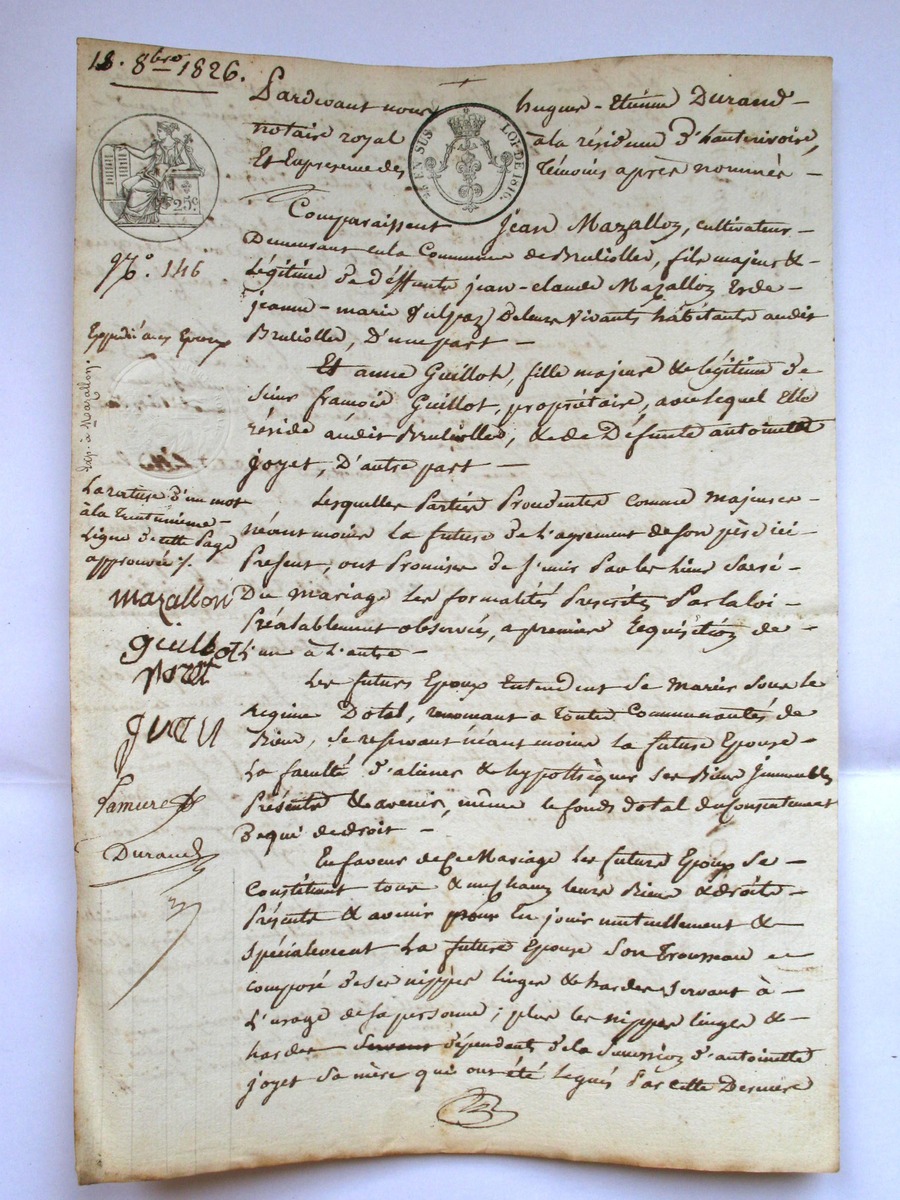 18. 8bre 1826.
Pardevant nous hugues-Etienne Durand
notaire royal à la résidence d'hauterivoire,
Et En presence des Témoins après nommés
EN SUS LOI DE 1816.
25c
No. 146
Comparaissent Jean Mazallon, cultivateur
Demeurant en la Commune de Brulioles, fils majeur &
Légitime de déffunts jean-claude Mazallon Et de
jeanne-marie Deleurs Vivants habitants audit
Brulioles, d'une part
Expédié aux Epoux
Exp. à Mazallon.
Et anne Guillot, fille majeure & légitime de
Sieur francois Guillot, propriétaire, avec lequel Elle
réside audit Brulioles, & de Défunte antoinette
joyet, D'autre part
La rature d'un mot
à la trentunième
Ligne de cette Page
approuvée ./.
Mazallon
guillot
Lamure
Durand
Lesquelles Parties Procedantes comme Majeures
néantmoins la future de L'agrement de son père ici
Present, ont Promises de S'unir Par les liens Sacré
Du Mariage Les formalités Prescrites Par la loi
Préalablement observées, a premiere Requisition de
L'un à L'autre
Les futurs Epoux Entendent Se Marier sous le
Regime Dotal, renoncant a Toutes Communautés de
Biens, Se reservant néant moins la future Epouse
La faculté d'aliéner & hypothèquer Ses Biens Immeubles
Présents & avenir, même le fonds dotal du Consentement
De qui de droit
En faveur de Ce Mariage Les futurs Epoux Se
Constituent tous & un chacun leurs Biens & droits
Présents & avenir pour En jouir mutuellement &
spécialement La future Epouse Son Trousseau
composé de ses nippes linges & hardes Servant à
L'usage de sa personne; plus les nippes linges &
hardes servant dépendants de la Succession d'antoinette
joyet Sa mère qui ont été legués Par cette Derniere